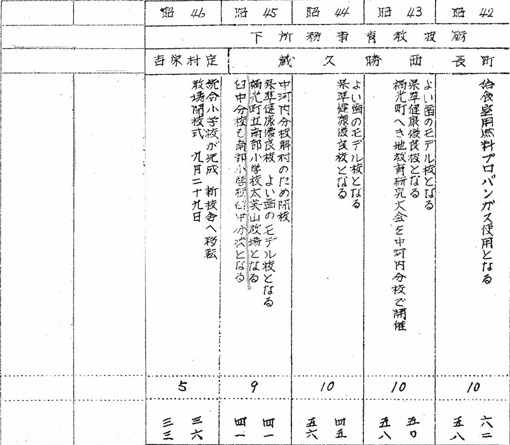 昭 42
昭 43
昭 44
昭 45
昭 46
砺波教育事務所下
町長西勝久蔵
定村栄吉
給食室用燃料プロパンガス使用となる
よい歯のモデル校となる
県準健康優良校となる
福光町へき地教育研究大会を中河内分校で開催
よい歯のモデル校となる
県準健康優良校となる
中河内分校解村のため閉校
県準健康優良校 よい歯のモデル校となる
福光町立南部小学校太美山教場となる
臼中分校も南部小学校臼中分校となる
統合小学校が完成 新校舎へ移転
教場閉校式 九月二十九日
10
10
10
9
5
六二
五八
五〇
五八
四五
五六
四一
四一
三六
三三